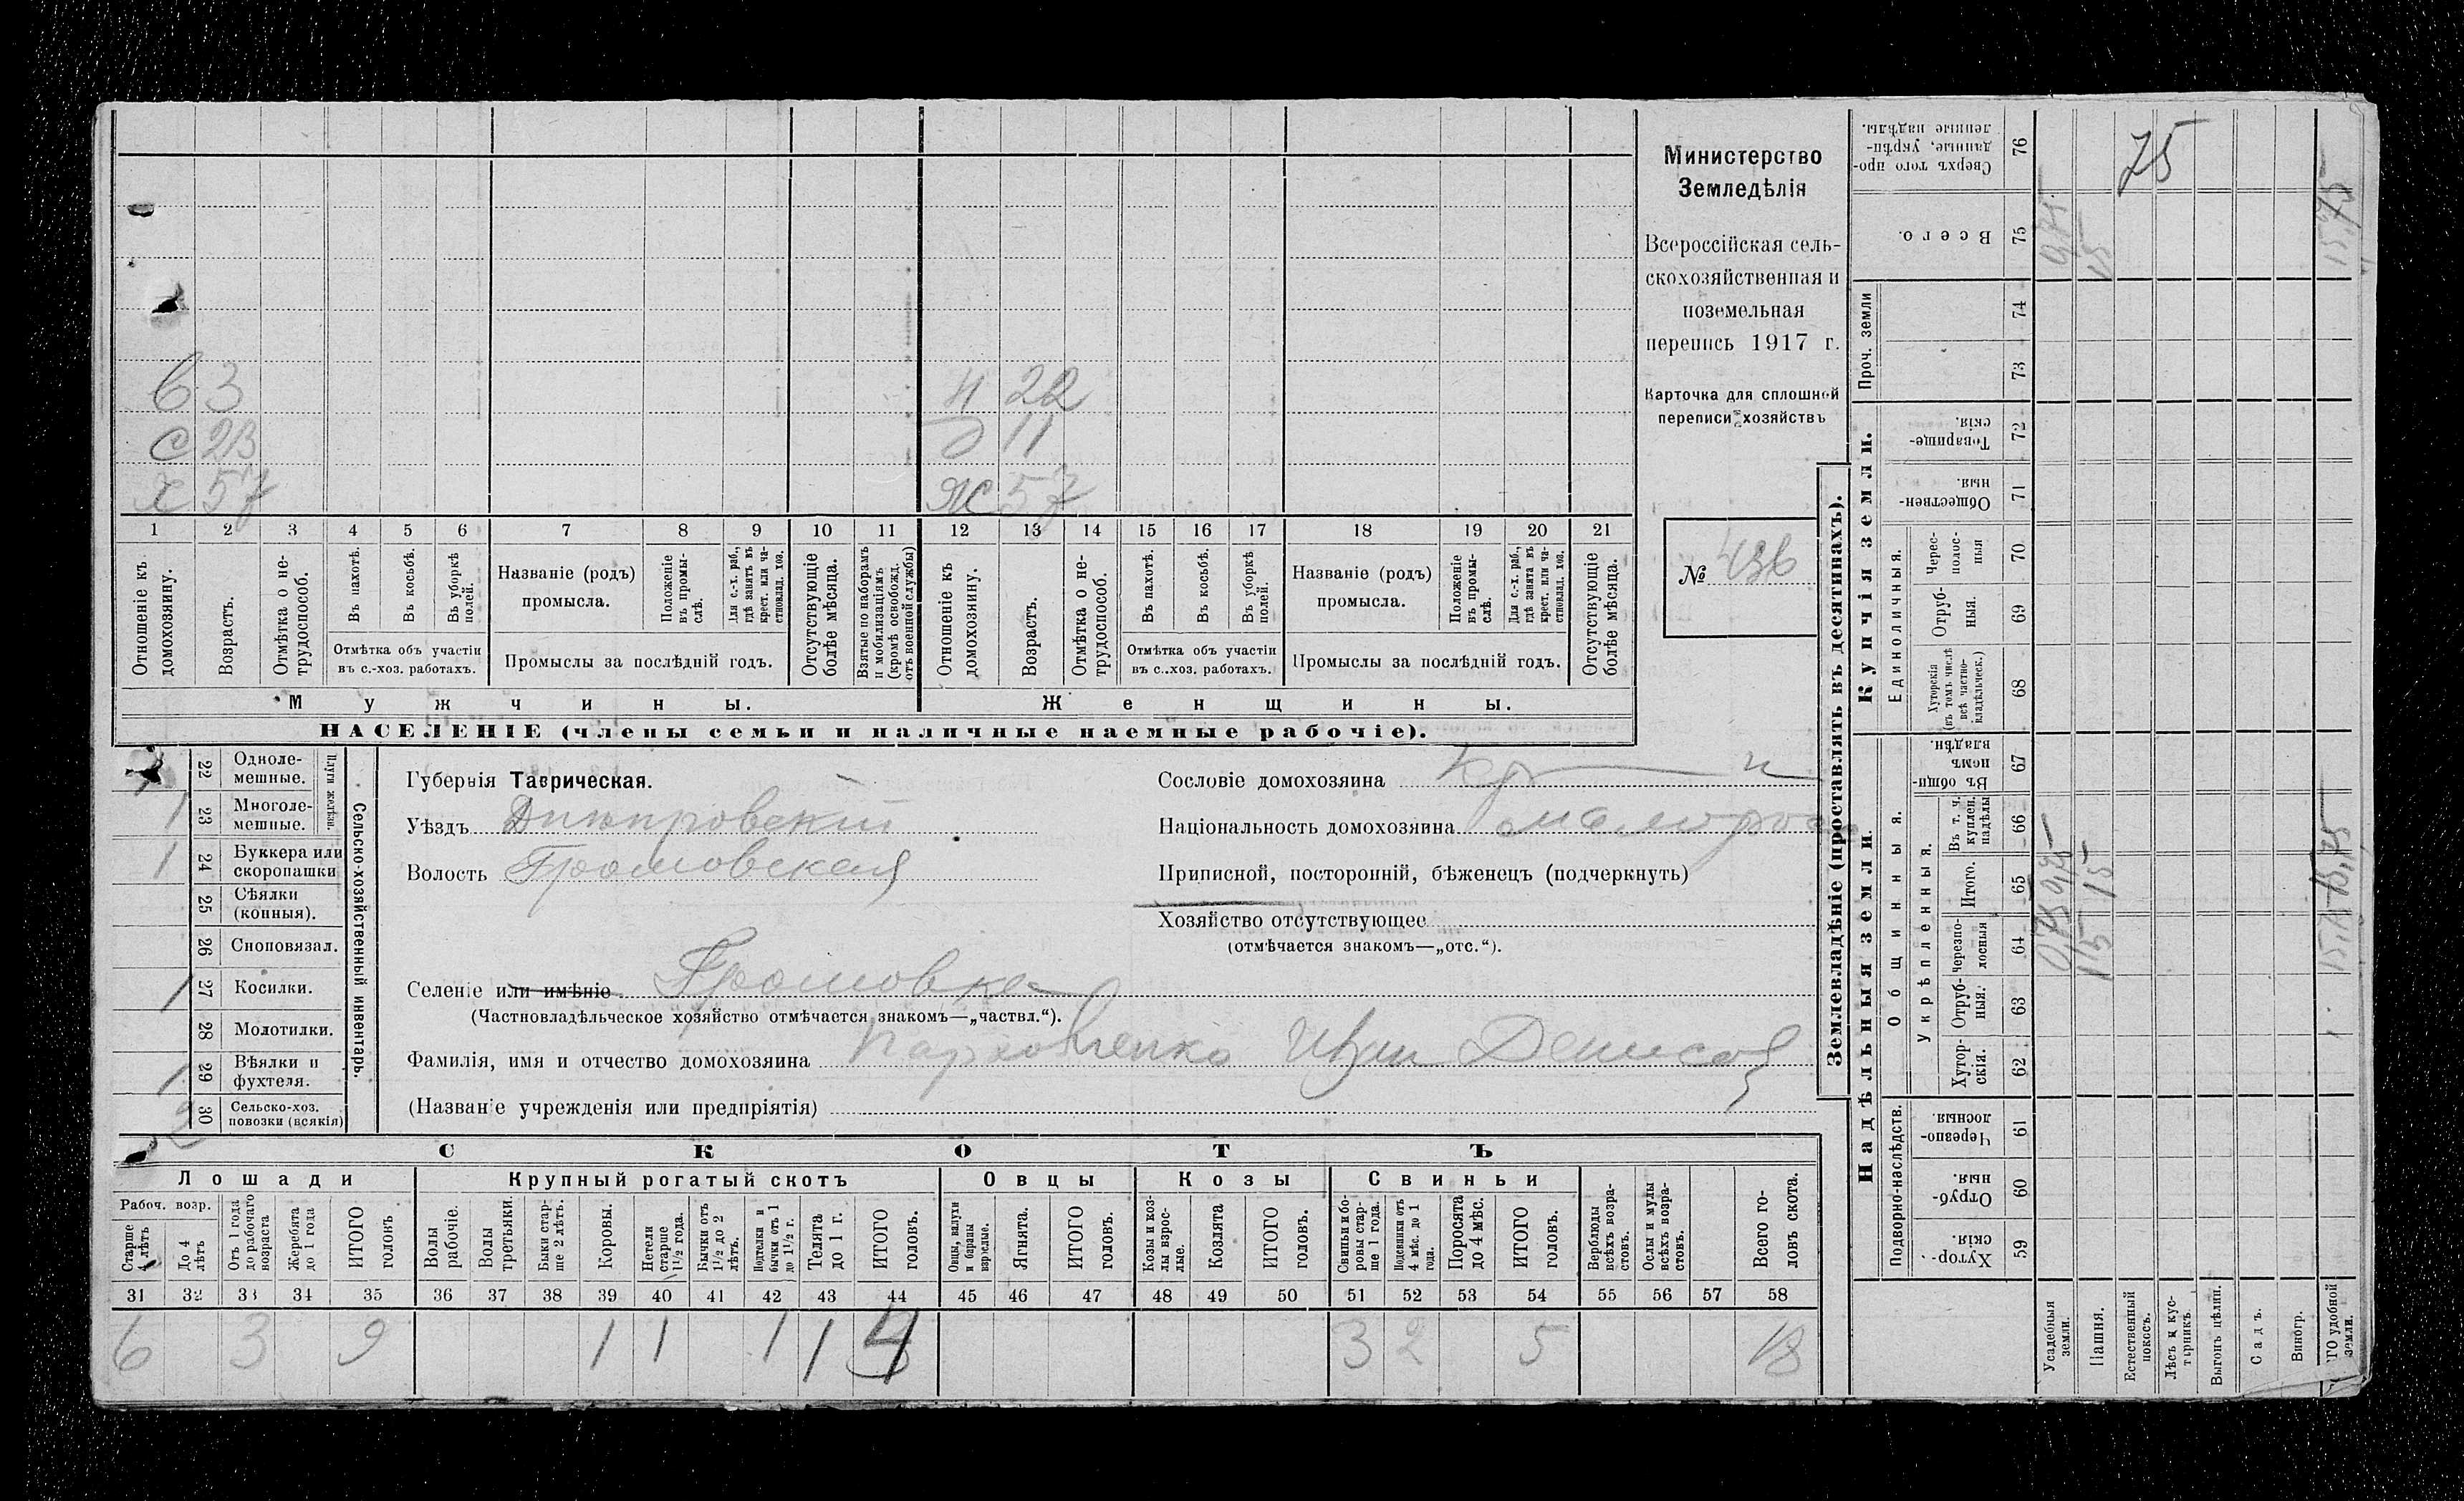 Министерство
Земледѣлія
Всероссійская сель-
скохозяйственная и
поземельная
перепись 1917 г.
Карточка для сплошной
переписи хозяйствъ
№ 436
в 3
с 23
х 57
н 22
д 11
ж 57
1 2 3 4 5 6 7 8 9 10 11 12 13 14 15 16 17 18 19 20 21
Отношеніе къ домохозяину.
Возрастъ.
Отмѣтка о не-трудоспособ.
Въ пахотѣ.
Въ косьбѣ.
Въ уборкѣ полей.
Отмѣтка объ участіи
въ с.-хоз. работахъ.
Названіе (родъ)
промысла.
Положеніе въ промы-слѣ.
Для с.-х. раб., гдѣ занятъ въ крест. или ча-стновлад. хоз.
Промыслы за послѣдній годъ.
Отсутствующіе болѣе мѣсяца.
Взятые по наборамъ и мобилизаціямъ (кромѣ освобожд. отъ военной службы)
Отношеніе къ домохозяину.
Возрастъ.
Отмѣтка о не-трудоспособ.
Въ пахотѣ.
Въ косьбѣ.
Въ уборкѣ полей.
Отмѣтка объ участіи
въ с.-хоз. работахъ.
Названіе (родъ)
промысла.
Положеніе въ промы-слѣ.
Для с.-х. раб., гдѣ занята въ крест. или ча-стновлад. хоз.
Промыслы за послѣдній годъ.
Отсутствующіе болѣе мѣсяца.
Мужчины.
Женщины.
НАСЕЛЕНІЕ (члены семьи и наличные наемные рабочіе).
Сельско-хозяйственный инвентарь.
Плуги желѣзн.
22 Одноле-мешные.
1 23 Многоле-мешные.
1 24 Буккера или скоропашки
25 Сѣялки (конныя).
26 Сноповязал.
1 27 Косилки.
28 Молотилки.
1 29 Вѣялки и фухтеля.
2 30 Сельско-хоз. повозки (всякія)
Губернія Таврическая.
Уѣздъ Днѣпровскій
Волость Громовская
Сословіе домохозяина кр-н
Національность домохозяина малорос
Приписной, посторонній, бѣженецъ (подчеркнуть)
Хозяйство отсутствующее
(отмѣчается знакомъ—„отс.“).
Селеніе или имѣніе Громовка
(Частновладѣльческое хозяйство отмѣчается знакомъ—„частвл.“).
Фамилія, имя и отчество домохозяина Пархоменко Иван Денисов
(Названіе учрежденія или предпріятія)
СКОТЪ
Лошади
Крупный рогатый скотъ
Овцы
Козы
Свиньи
Рабоч. возр.
Старше 4 лѣтъ
До 4 лѣтъ
Отъ 1 года до рабочаго возраста
Жеребята до 1 года
ИТОГО головъ
Волы рабочіе.
Волы третьяки.
Быки стар-ше 2 лѣтъ.
Коровы.
Нетели старше 1½ года.
Бычки отъ 1½ до 2 лѣтъ.
Подтелки и бычки отъ 1 до 1½ г.
Телята до 1 г.
ИТОГО головъ.
Овцы, валухи и бараны взрослые.
Ягнята.
ИТОГО головъ.
Козы и коз-лы взрос-лые.
Козлята
ИТОГО головъ.
Свиньи и бо-ровы стар-ше 1 года.
Подсвинки отъ 4 мѣс. до 1 года.
Поросята до 4 мѣс.
ИТОГО головъ.
Верблюды всѣхъ возра-стовъ.
Ослы и мулы всѣхъ возра-стовъ.
Всего го-ловъ скота.
31 32 33 34 35 36 37 38 39 40 41 42 43 44 45 46 47 48 49 50 51 52 53 54 55 56 57 58
6 3 9 1 1 1 1 4 3 2 5 18
Землевладѣніе (проставлять въ десятинахъ).
Купчія земли.
Надѣльныя земли.
Сверхъ того про-данные, укрѣп-ленные надѣлы. 76
Всего. 75
Проч. земли 74 73
Товарище-скія 72
Обществен-ныя. 71
Единоличныя.
Черес-полос-ныя 70
Отруб-ныя. 69
Хуторскія (въ томъ числѣ всѣ частно-владѣльческ.) 68
Общинныя.
Въ общин-номъ владѣн. 67
Укрѣпленныя.
Въ т. ч. куплен. надѣлы 66
Итого. 65
Черезпо-лосныя 64
Отруб-ныя. 63
Хутор-скія. 62
Подворно-наслѣдств.
Черезпо-лосныя 61
Отруб-ныя. 60
Хутор-скія. 59
Усадебныя земли.
Пашня.
Естественный покосъ.
Лѣсъ и кус-тарникъ.
Выгонъ цѣлин.
Садъ.
Виногр.
ГО удобной земли.
75
0,75
15
15,75
0,75
15
15
15,75